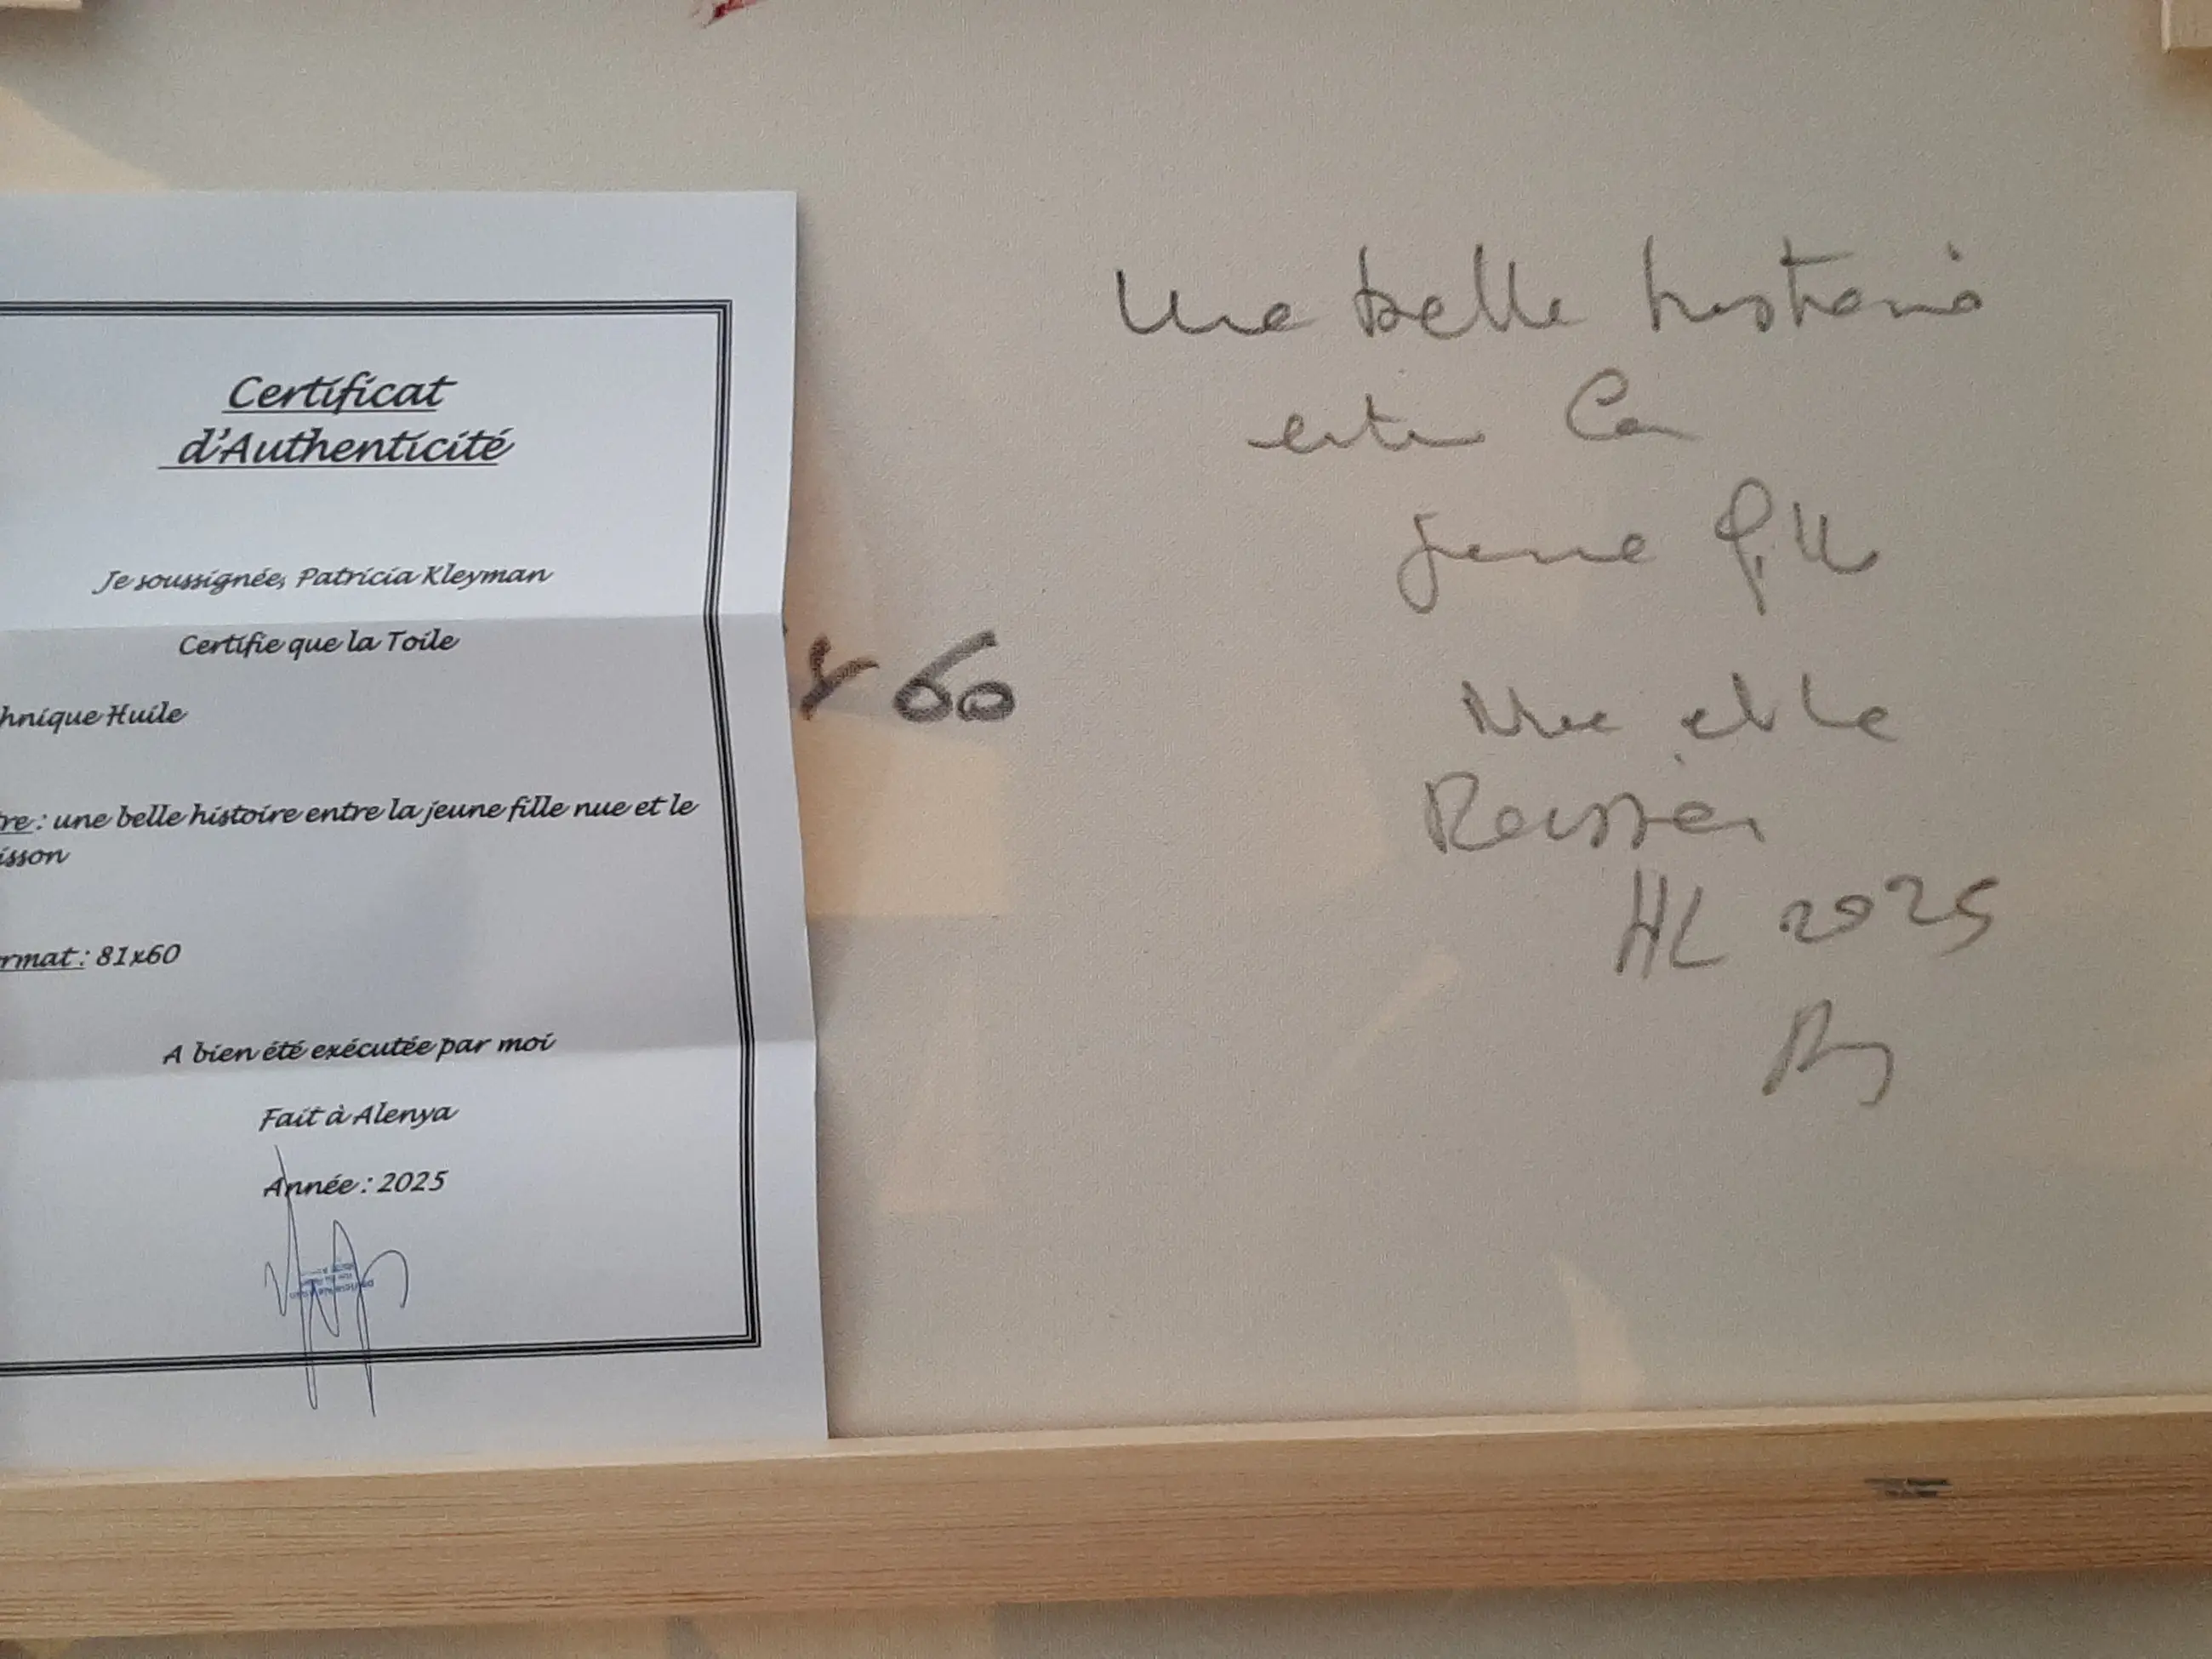 Certificat
d'Authenticité
Je soussignée, Patricia Kleyman
Certifie que la Toile
hnique Huile
re : une belle histoire entre la jeune fille nue et le
isson
rmat : 81x60
A bien été exécutée par moi
Fait à Alenya
Année : 2025
x 60
Une belle histoire
entre la
jeune fille
Nue et le
Poisson
HL 2025